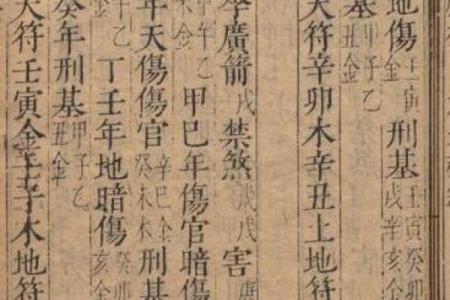 地傷壬寅金刑基壬寅癸卯戌辛亥
基甲子乙丑金
天符辛卯木辛丑土地符
李廣箭戌禁煞害
甲巳年傷官暗傷
年天傷傷官辛巳金癸未木刑基
丁壬年地暗傷癸卯亥金
癸年刑基甲子乙丑金
天符壬寅金壬子木地符